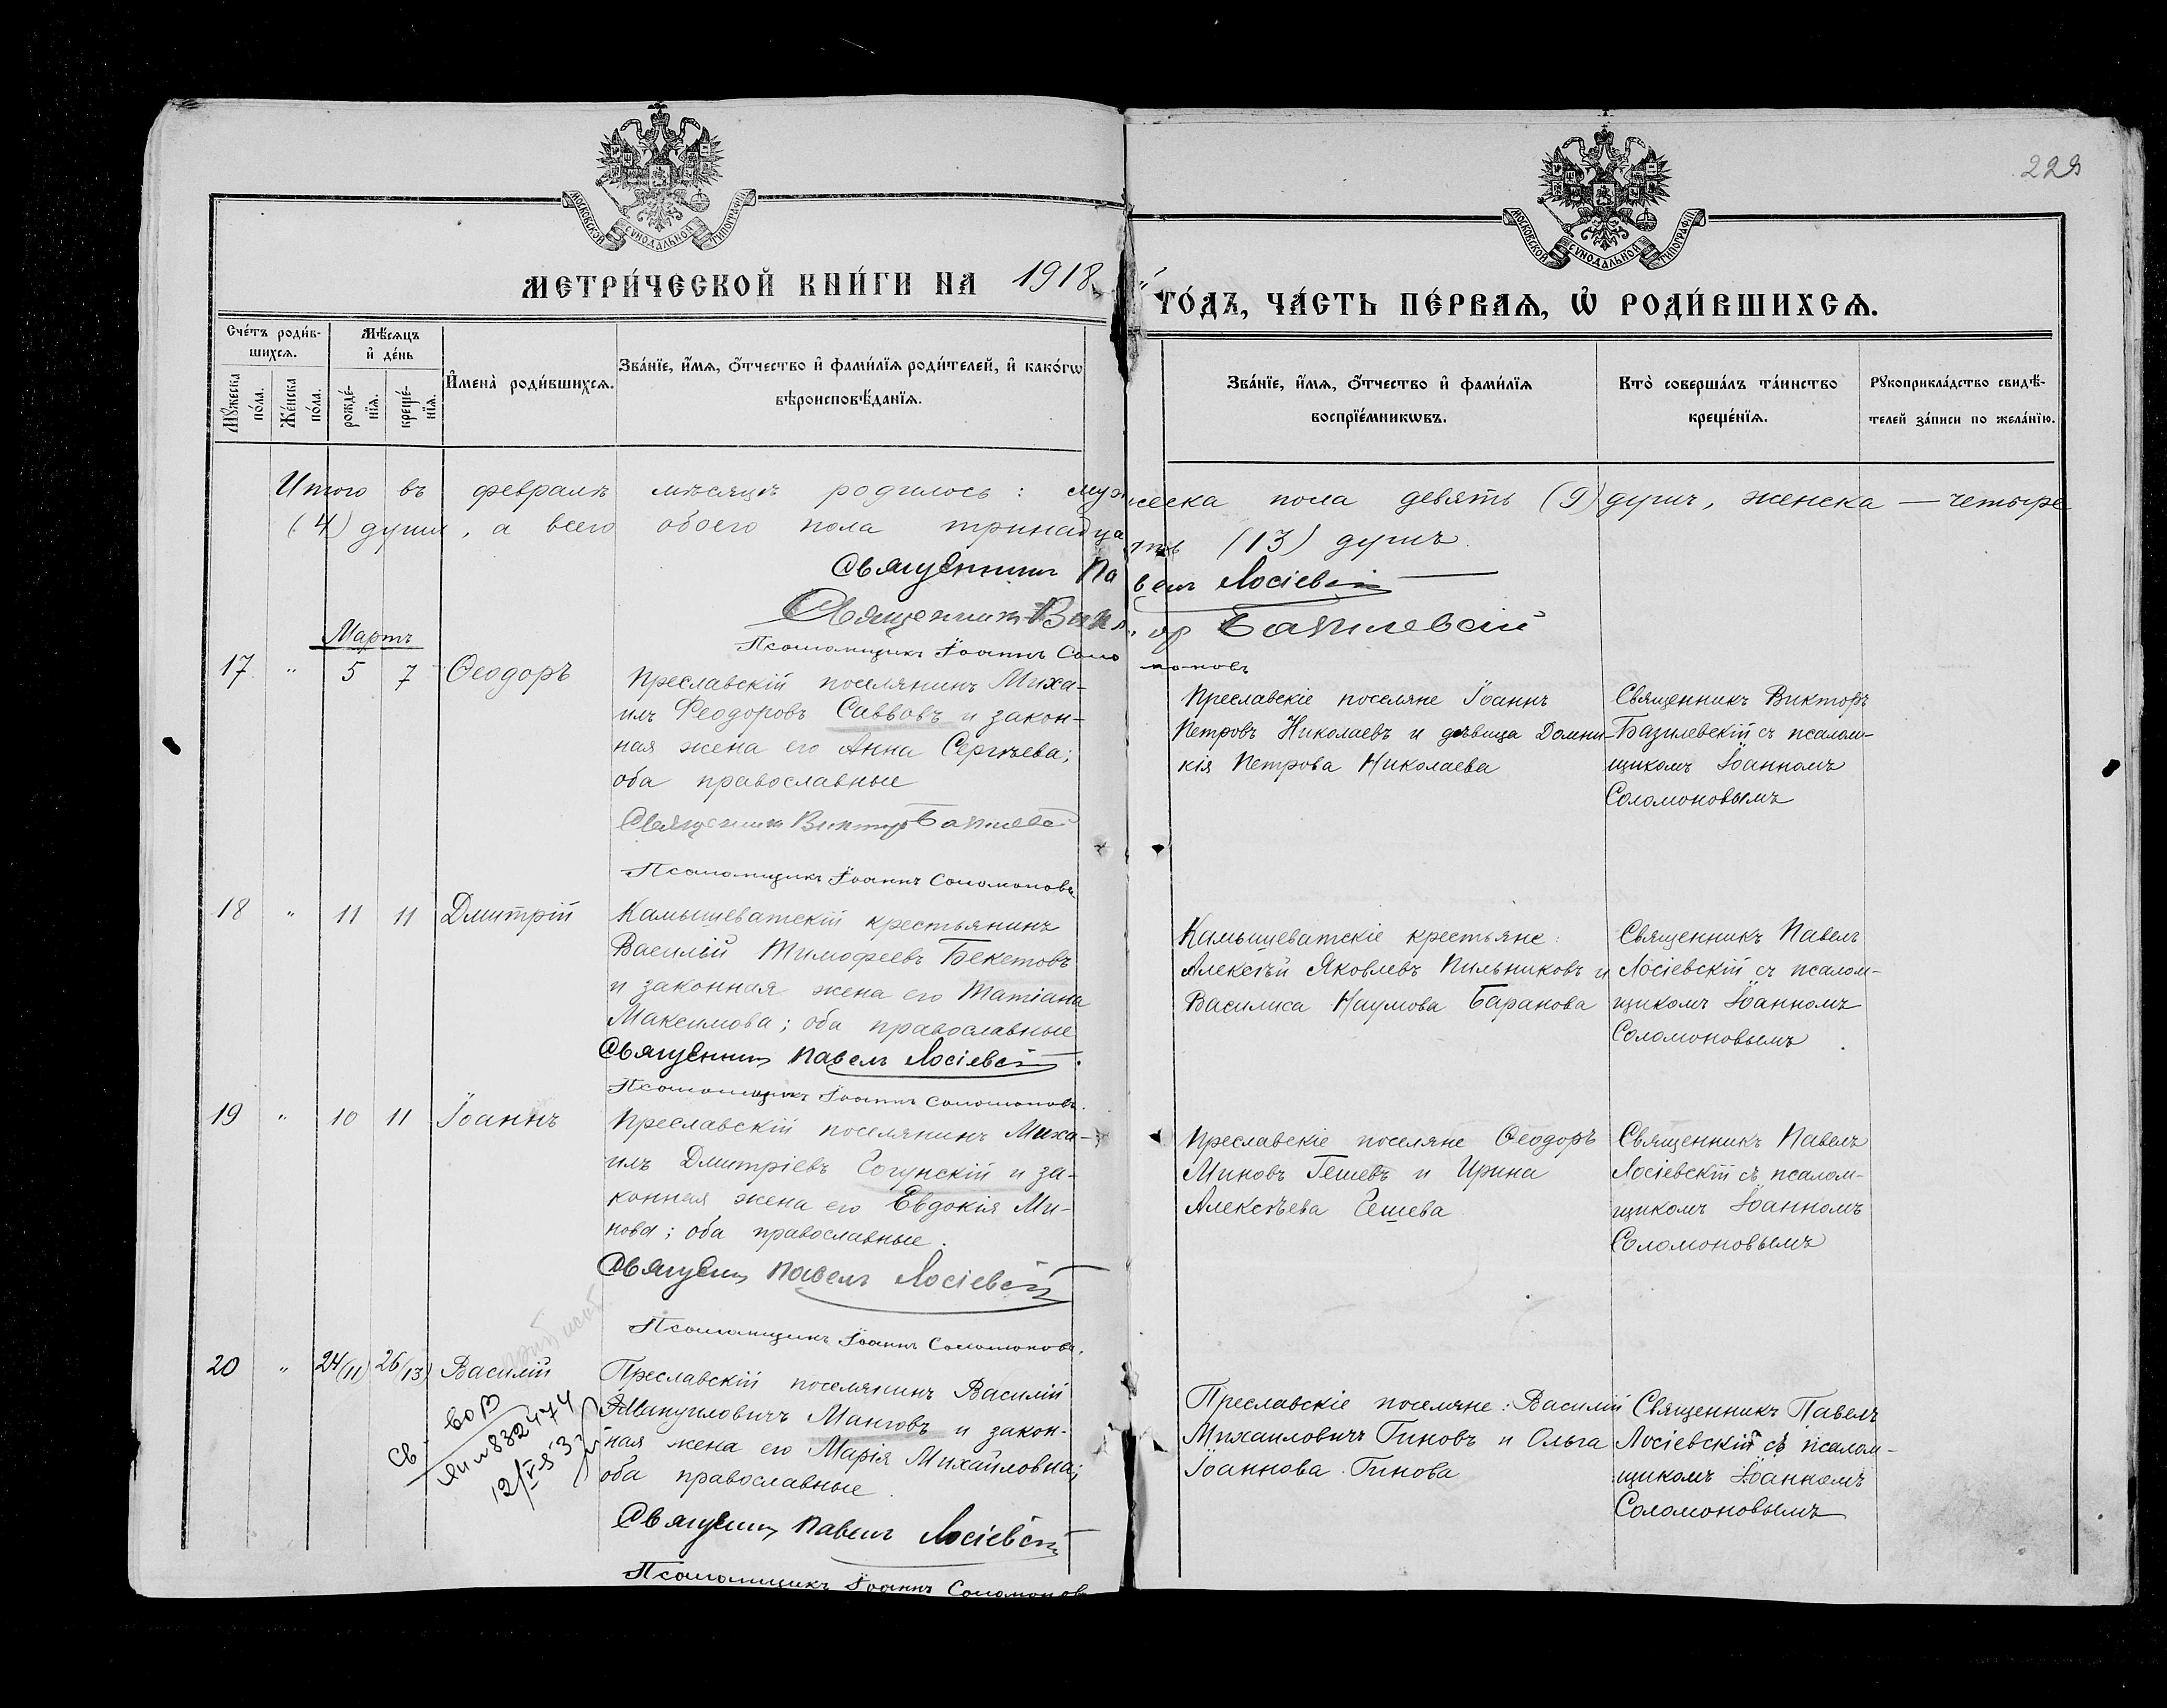 МОСКОВСКОЙ СѴНОДАЛЬНОЙ ТИПОГРАФІИ
МОСКОВСКОЙ СѴНОДАЛЬНОЙ ТИПОГРАФІИ
229
МЕТРИ́ЧЕСКОЙ КНИ́ГИ НА 1918
ГО́ДЪ, ЧА́СТЬ ПЕ́РВАѦ, Ѡ҆ РОДИ́ВШИХСѦ.
Сче́тъ роди́в-
шихсѧ.
Мѣ́сѧцъ
и҆ де́нь
Мꙋ́жеска
по́ла.
Же́нска
по́ла.
рожде́-
нїѧ.
креще́-
нїѧ.
И҆мена̀ роди́вшихсѧ.
Зва́нїе, и҆́мѧ, ѻ҆́тчество и҆ фами́лїѧ роди́телей, и҆ како́гѡ
вѣроисповѣ́данїѧ.
Зва́нїе, и҆́мѧ, ѻ҆́тчество и҆ фами́лїѧ
воспрїе́мникѡвъ.
Кто̀ соверша́лъ та́инство
креще́нїѧ.
Рꙋкоприкла́дство свидѣ́-
телей за́писи по жела́нїю.
Итого въ февралѣ мѣсяцѣ родилось: мужеска пола девять (9) душъ, женска — четыре
(4) души, а всего обоего пола тринадцать (13) душъ.
Священникъ Павелъ Лосіевскій
Священникъ Викторъ Базилевскій
Псаломщикъ Іоаннъ Соломоновъ
Мартъ
17 " 5 7 Ѳеодоръ
Преславскій поселянинъ Миха-
илъ Феодоровъ Саввовъ и закон-
ная жена его Анна Сергѣева;
оба православные
Священникъ Викторъ Базилевс
Псаломщикъ Іоаннъ Соломоновъ
Преславскіе поселяне Іоаннъ
Петровъ Николаевъ и дѣвица Домни-
кія Петрова Николаева
Священникъ Викторъ
Базилевскій съ псалом-
щикомъ Іоанномъ
Соломоновымъ
18 " 11 11 Дмитрій
Камышеватскій крестьянинъ
Василій Тимофеевъ Бекетовъ
и законная жена его Татіана
Максимова; оба православные
Священникъ Павелъ Лосіевскій
Псаломщикъ Іоаннъ Соломоновъ.
Камышеватскіе крестьяне:
Алексѣй Яковлевъ Пильниковъ и
Василиса Наумова Баранова
Священникъ Павелъ
Лосіевскій съ псалом-
щикомъ Іоанномъ
Соломоновымъ
19 " 10 11 Іоаннъ
Преславскій поселянинъ Миха-
илъ Дмитріевъ Гогунскій и за-
конная жена его Евдокія Ми-
нова; оба православные.
Священникъ Павелъ Лосіевскій
Псаломщикъ Іоаннъ Соломоновъ.
Преславскіе поселяне Ѳеодоръ
Миновъ Гешевъ и Ирина
Алексѣева Гешева
Священникъ Павелъ
Лосіевскій съ псалом-
щикомъ Іоанномъ
Соломоновымъ
20 " 24(11) 26(13) Василій
Преславскій поселянинъ Василій
Мануиловичъ Манговъ и закон-
ная жена его Марія Михайловна;
оба православные.
Священникъ Павелъ Лосіевскій
Псаломщикъ Іоаннъ Соломоновъ
Преславскіе поселяне: Василій
Михаиловичъ Гиновъ и Ольга
Іоаннова Гинова
Священникъ Павелъ
Лосіевскій съ псалом-
щикомъ Іоанномъ
Соломоновымъ